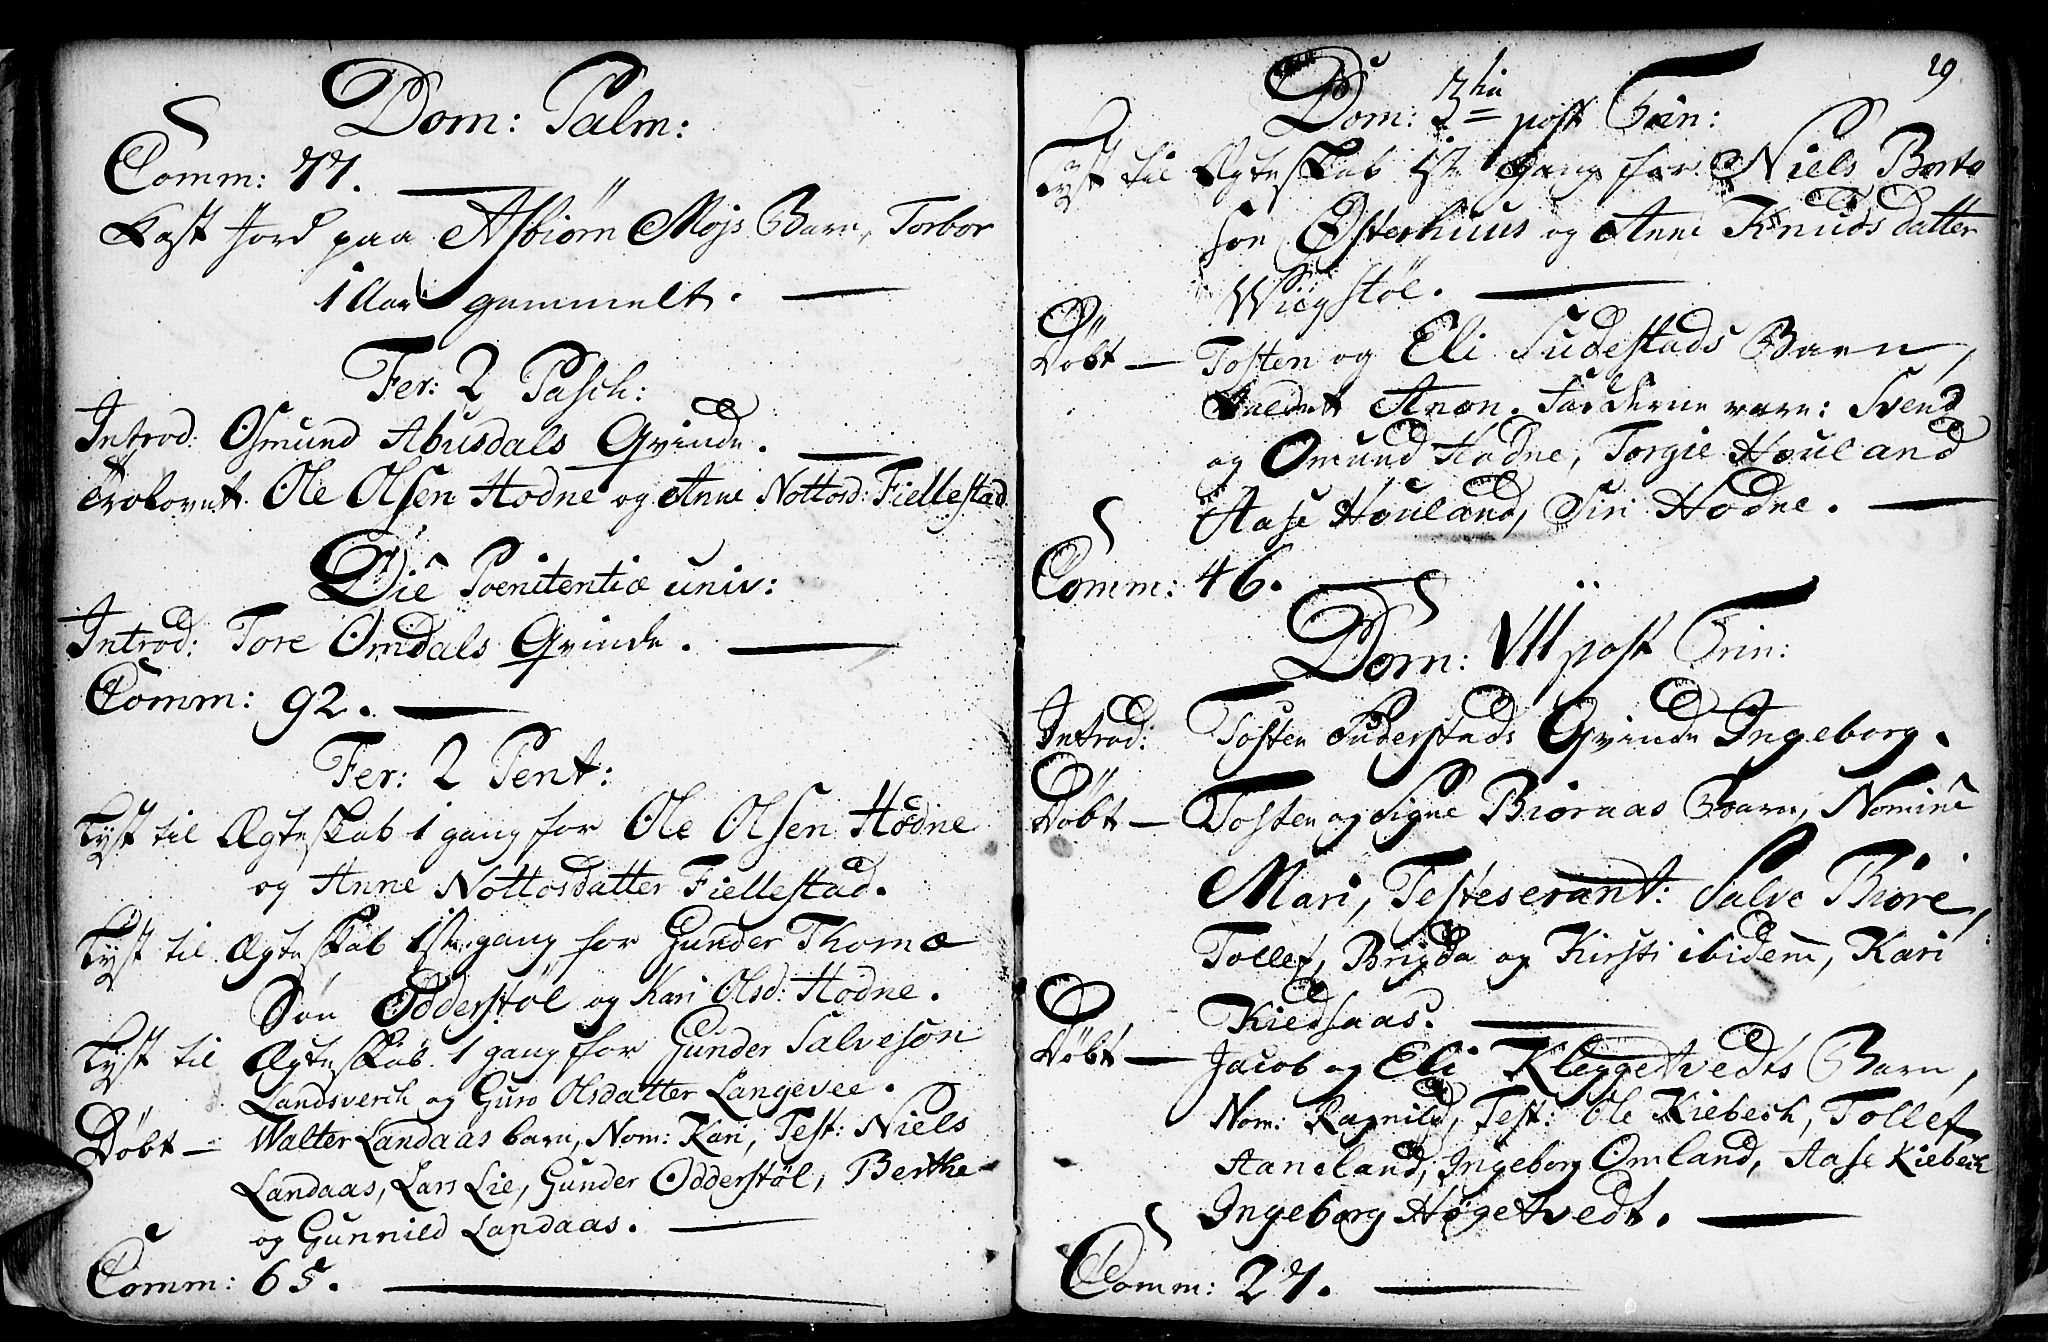 Dom: Palm:
Comm: 77.
Kast Jord paa Asbiørn Mojs Barn, Torbor
1 Aar gammelt.
Fer: 2 Pasch:
Introd: Osmund Abusdals Qvinde.
Trolovet Ole Olsen Hodne og Anne Nottosd: Fiellestad
Die Poenitentiæ univ:
Introd: Tore Omdals Qvinde.
Comm: 92.
Fer: 2 Pent:
Lyst til Ægteskab 1 gang for Ole Olsen Hodne
og Anne Nottosdatter Fiellestad.
Lyst til Ægteskab 1ste gang for Gunder Thomæ
Søn Odderstøl og Kari Olsd: Hodne.
Lyst til Ægteskab 1 gang for Gunder Salveson
Landsverch og Guro Olsdatter Langevee.
Døbt — Walter Landaas barn, Nom: Kari, Test: Niels
Landaas, Lars Lie, Gunder Odderstøl, Berthe
og Gunnild Landaas.
Comm: 65.
29
Dom: 3tia post Trin:
Lyst til Ægteskab 1ste Gang for Niels Berte
son Østerhuus og Anne Knudsdatter
Wiigstøl.
Døbt — Tosten og Eli Sudestads Barn,
kaldet Anon. Fadderne vare: Svend
og Omund Hodne, Torgie Houland
Aase Houland, Siri Hodne.
Comm: 46.
Dom: VII post Trin:
Introd: Tosten Suderstads Qvinde Ingeborg.
Døbt — Tosten og Signe Biornaas Barn, Nomine
Mari, Testes erant: Salve Biøre,
Tollef, Brigda og Kirsti ibidem, Kari
Kiedsaas.
Døbt — Jacob og Eli Kleggetvedts Barn,
Nom: Ragnild, Test: Ole Kiebech, Tollef
Aaneland, Ingeborg Omland, Aase Kiebech
Ingeborg Høgetvedt.
Comm: 27.